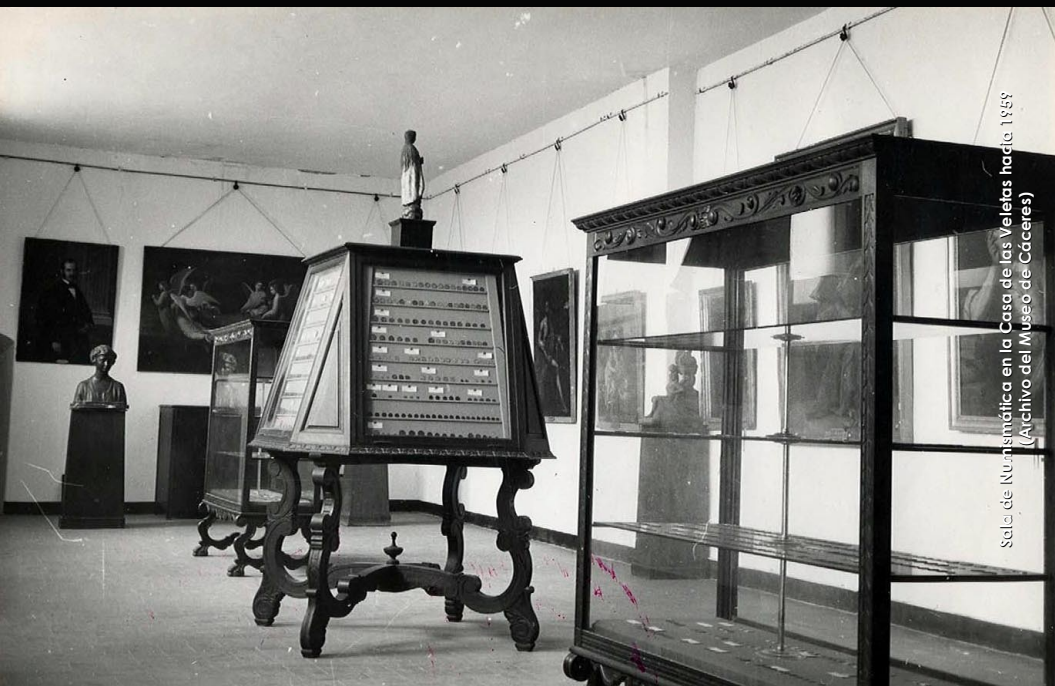 Sala de Numismática en la Casa de las Veletas hacia 1959
(Archivo del Museo de Cáceres)